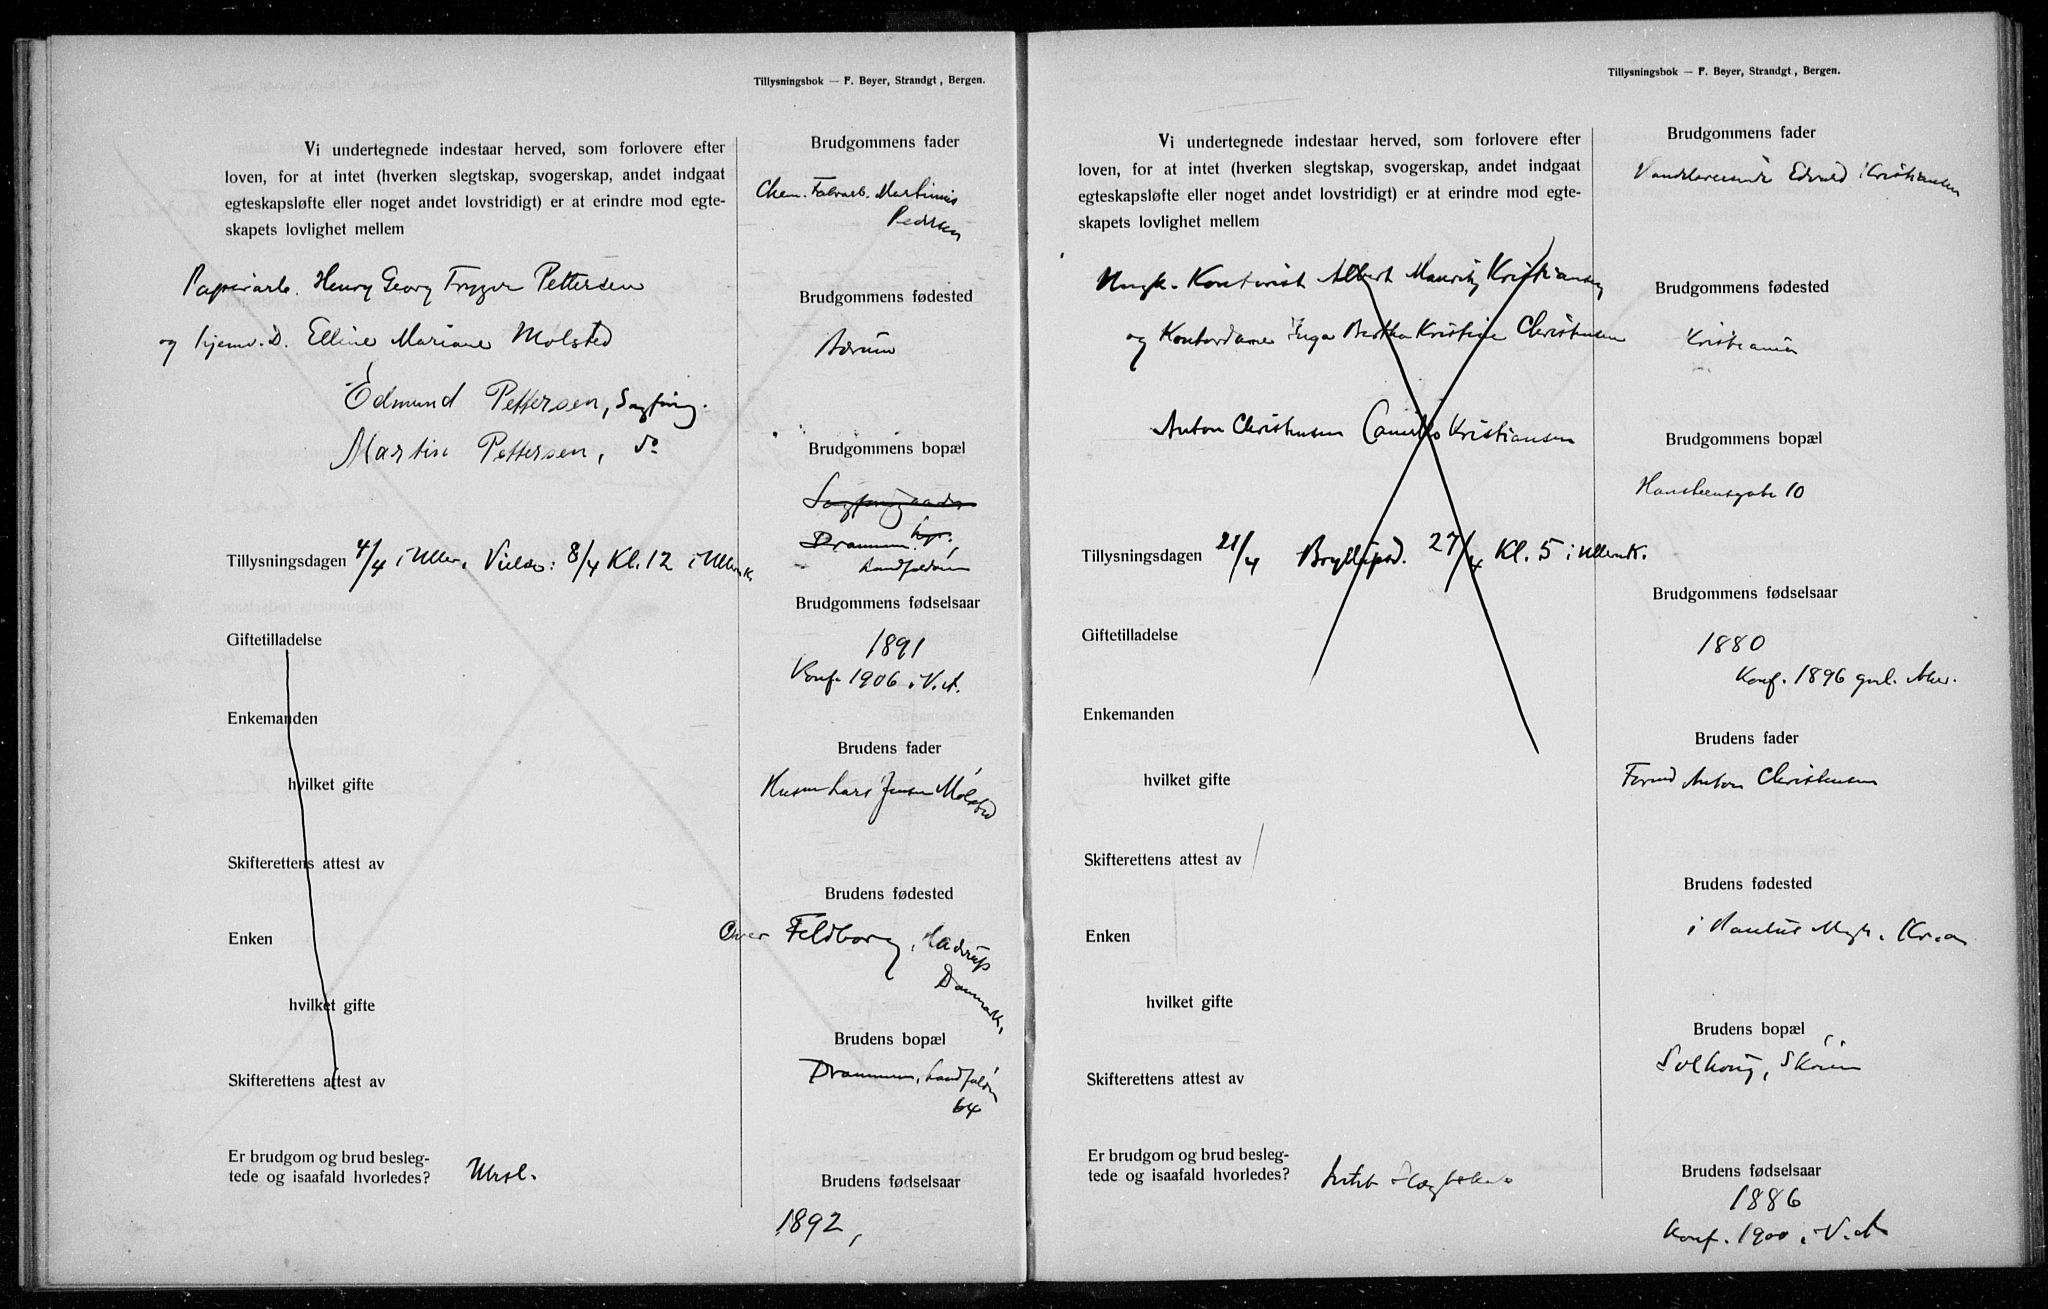 Tillysningsbok — F. Beyer, Strandgt, Bergen.
Vi undertegnede indestaar herved, som forlovere efter
loven, for at intet (hverken slegtskap, svogerskap, andet indgaat
egteskapsløfte eller noget andet lovstridigt) er at erindre mod egte-
skapets lovlighet mellem
Papirarb. Henry Georg Trygve Pettersen
og hjemv. D. Elline Mariane Mølsted
Edmund Pettersen, Sagfing.
Martin Pettersen, do
Tillysningsdagen 4/4 i Uller. Vielse: 8/4 Kl. 12 i Ullernk.
Giftetilladelse
Enkemanden
hvilket gifte
Skifterettens attest av
Enken
hvilket gifte
Skifterettens attest av
Er brudgom og brud besleg-
tede og isaafald hvorledes? Ubesl.
Brudgommens fader
Chem. Fabrarb. Martinius
Pedersen
Brudgommens fødested
Bærum
Brudgommens bopæl
Drammen
Landfaldøen
Brudgommens fødselsaar
1891
Konf. 1906 i V. A.
Brudens fader
Husm Lars Jensen Mølsted
Brudens fødested
Over Feldborg, Haderup
Danmark,
Brudens bopæl
Drammen, Landfaldøen
64
Brudens fødselsaar
1892,
Tillysningsbok — F. Beyer, Strandgt, Bergen.
Vi undertegnede indestaar herved, som forlovere efter
loven, for at intet (hverken slegtskap, svogerskap, andet indgaat
egteskapsløfte eller noget andet lovstridigt) er at erindre mod egte-
skapets lovlighet mellem
Ungk. Kontorist Albert Mauritz Kristiansen
og Kontordame Inga Bertha Kristine Christensen
Anton Christensen Camillo Kristiansen
Tillysningsdagen 21/4 Bryllupsd. 27/4 Kl. 5 i Ullernk.
Giftetilladelse
Enkemanden
hvilket gifte
Skifterettens attest av
Enken
hvilket gifte
Skifterettens attest av
Er brudgom og brud besleg-
tede og isaafald hvorledes? Intet Slegtskab
Brudgommens fader
Edvald Kristiansen
Brudgommens fødested
Kristiania
Brudgommens bopæl
Hansteensgate 10
Brudgommens fødselsaar
1880
Konf. 1896 gml. Aker.
Brudens fader
Formd Anton Christensen
Brudens fødested
i Kr.a
Brudens bopæl
Solhaug, Skøien
Brudens fødselsaar
1886
Konf. 1900 i V. A